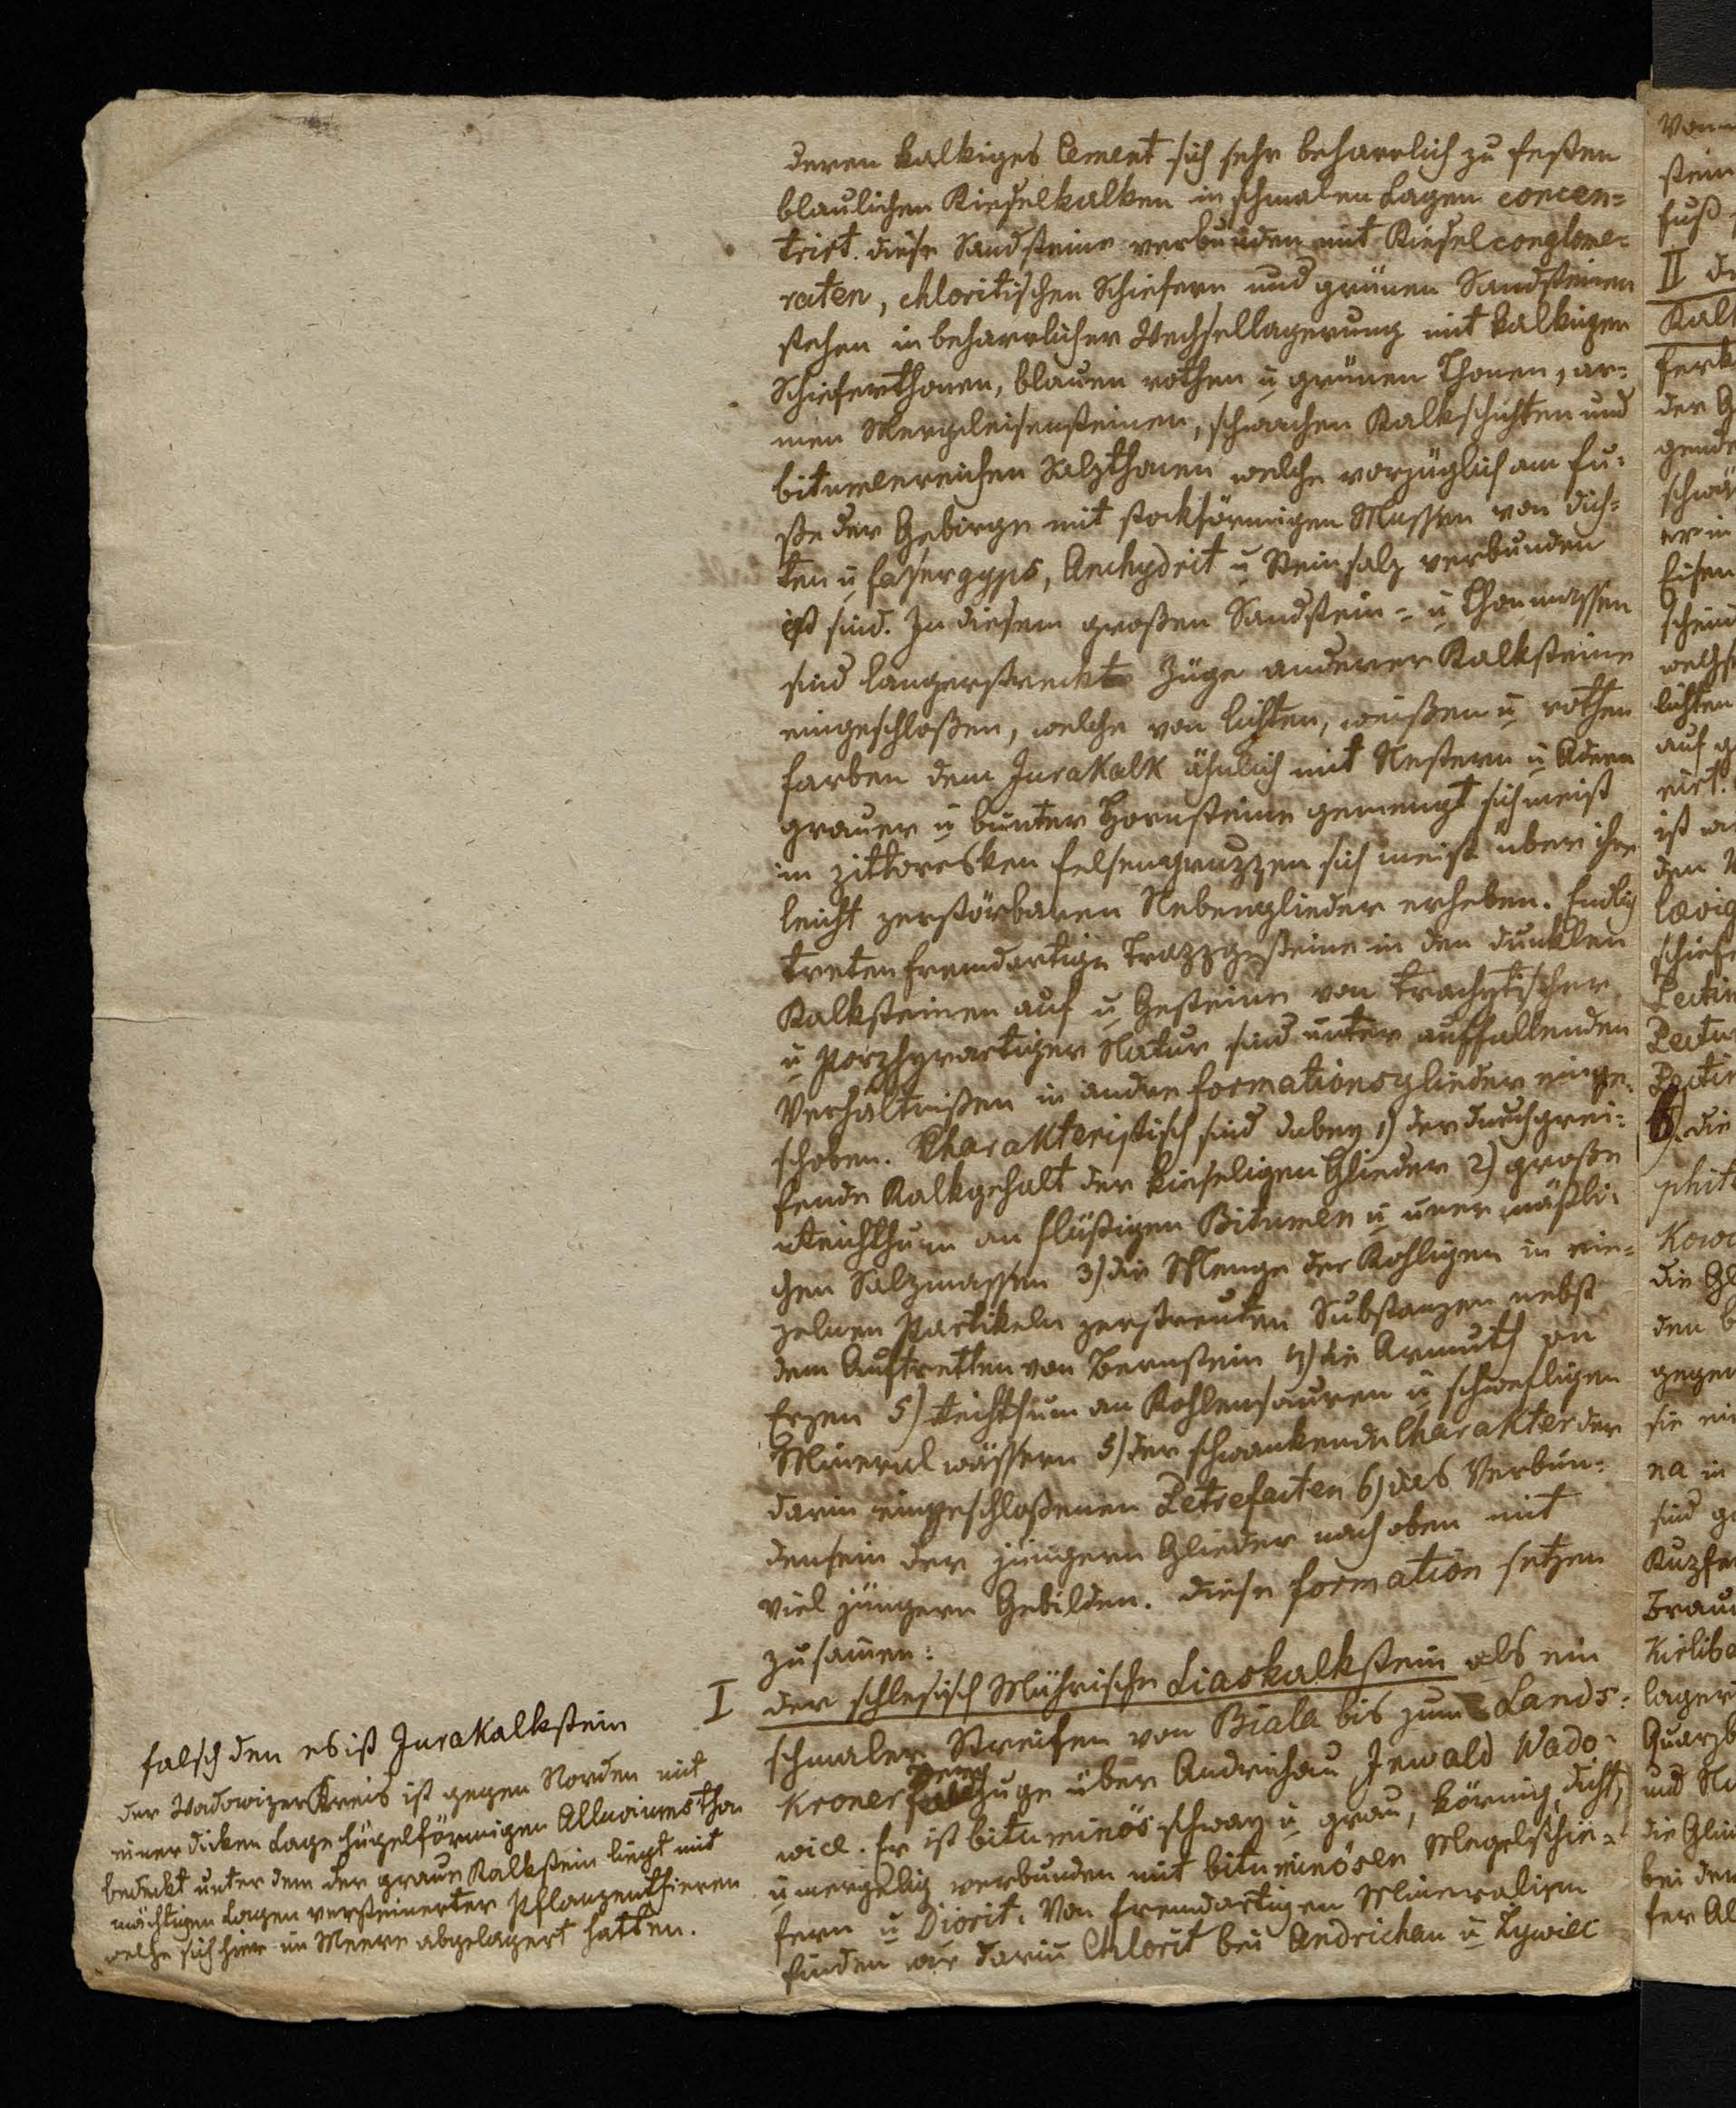 deren kalkiges Cement sich sehr beharrlich zu festen
blaulichen Kieselkalken in schmalen Lagen concen=
trirt. diese Sandsteine verbunden mit Kieselconglome=
raten, chloritischen Schiefern und grünen Sandsteinen
stehen in beharrlicher Wechsellagerung mit kalkigen
Schieferthonen, blauen rothen u grünen Thonen, ar=
men Mergeleisensteinen, schwachen Kalkschichten und
bitumenreichen Salzthonen welche vorzüglich am Fu=
ße der Gebirge mit stockförmigen Massen von dich=
ten u Fasergyps, Anhydrit u Steinsalz verbunden
ist sind. In diesem großen Sandstein- u Thonmassen
sind langerstreckte Züge anderer Kalksteine
eingeschloßen, welche von lichten, weißen u rothen
Farben dem Jurakalk ähnlich mit Nestern u Adern
grauer u bunter Hornsteine gemengt sich meist
in pittoresken Felsengruppen sich meist über ihre
leicht zerstörbaren Nebenglieder erheben. Endlich
treten fremdartige Trappgesteine in den dunklen
Kalksteinen auf u Gesteine von trachytischer
u porphyrartiger Natur sind unter auffallenden
Verhältnißen in andre Formationsglieder einge=
schoben. Charakteristisch sind dabey 1) der durchgrei=
fende Kalkgehalt der kieseligen Glieder 2) große
Reichthum an flüßigen Bitumen u unermäßli=
chen Salzmassen 3) die Menge der kohligen in ein=
zelnen Partikeln zerstreuten Substanzen nebst
dem Auftretten von Bernstein 4) die Armuth an
Erzen 5) Reichthum an Kohlensauren u schwefligen
Mineralwässern 5) der schwankende Charakter der
darin eingeschloßenen Petrefacten 6) das Verbun=
densein der jüngern Glieder nach oben mit
viel jüngern Gebilden. Diese Formation setzen
zusamen:
I der schlesisch Mährische Liaskalkstein als ein
schmaler Streifen von Biala bis zum Lands=
kroner Bergzuge über Andrichau Inwald Wado=
wice. Er ist bituminös schwarz u grau, körnig, dicht,
u mergelig verbunden mit bituminösen Megelschie=
fern u Diorit. Von fremdartigen Mineralien
finden wir darin Chlorit bei Andrichau u Zywiec
falsch den es ist Jurakalkstein
der Wadowizer Kreis ist gegen Norden mit
einer dicken Lage hügelförmigen Alluviums thon
bedeckt unter dem der graue Kalkstein liegt mit
mächtigen Lagen versteinerter Pflanzenthieren
welche sich hier im Meere abgelagert hatten.
stein
fuß
II
der
schief
6) die
phit
die Gl
den
gegen
sie ein
na in
sind
lager
und
bei den
fer Al